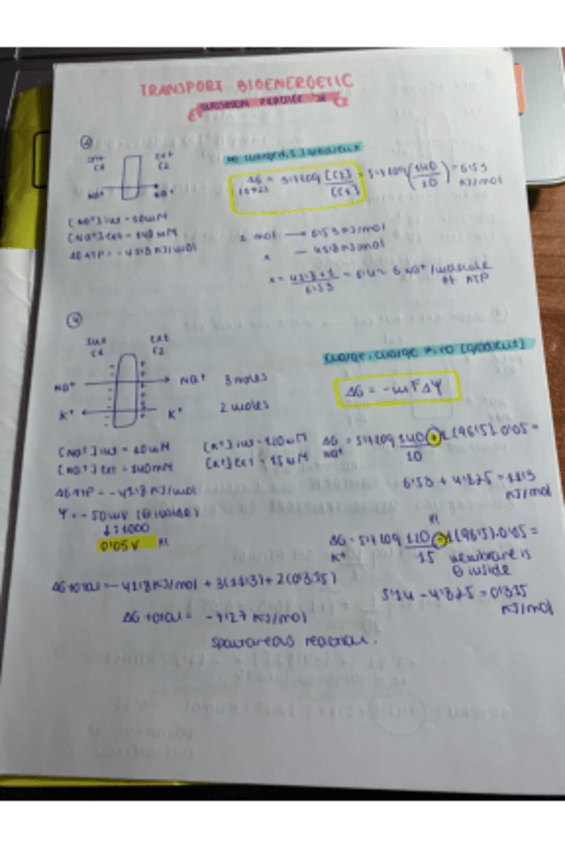 TRANSPORT BIOENERGETIC
③
Int Ext
C1 C2
Na⁺ Na⁺
[Na⁺] int = 10 mM
[Na⁺] ext = 140 mM
ΔG ATP = - 41'8 KJ/mol
ΔG = 5'7 log [C2]/[C1] = 5'7 log (140/10) = 6'53 KJ/mol
1 mol → 6'53 KJ/mol
x — 41'8 KJ/mol
x = 41'8 · 1 / 6'53 = 6'4 ≈ 6 Na⁺ / molecule of ATP
④
Int Ext
C1 C2
Na⁺ Na⁺ 3 moles
K⁺ K⁺ 2 moles
ΔG = -mFΔΨ
[Na⁺] int = 10 mM [K⁺] int = 120 mM
[Na⁺] ext = 140 mM [K⁺] ext = 15 mM
ΔG Na⁺ = 5'7 log 140/10 + 1 (96'5) · 0'05 =
6'53 + 4'825 = 11'3 KJ/mol
ΔG ATP = - 41'8 KJ/mol
Ψ = - 50 mV (⊖ inside)
↓ : 1000
0'05 V
ΔG K⁺ = 5'7 log 120/15 - 1 (96'5) · 0'05 =
membrane is ⊖ inside
5'14 - 4'825 = 0'315 KJ/mol
ΔG total = - 41'8 KJ/mol + 3(11'3) + 2(0'315)
ΔG total = - 7'27 KJ/mol
spontaneous reaction.